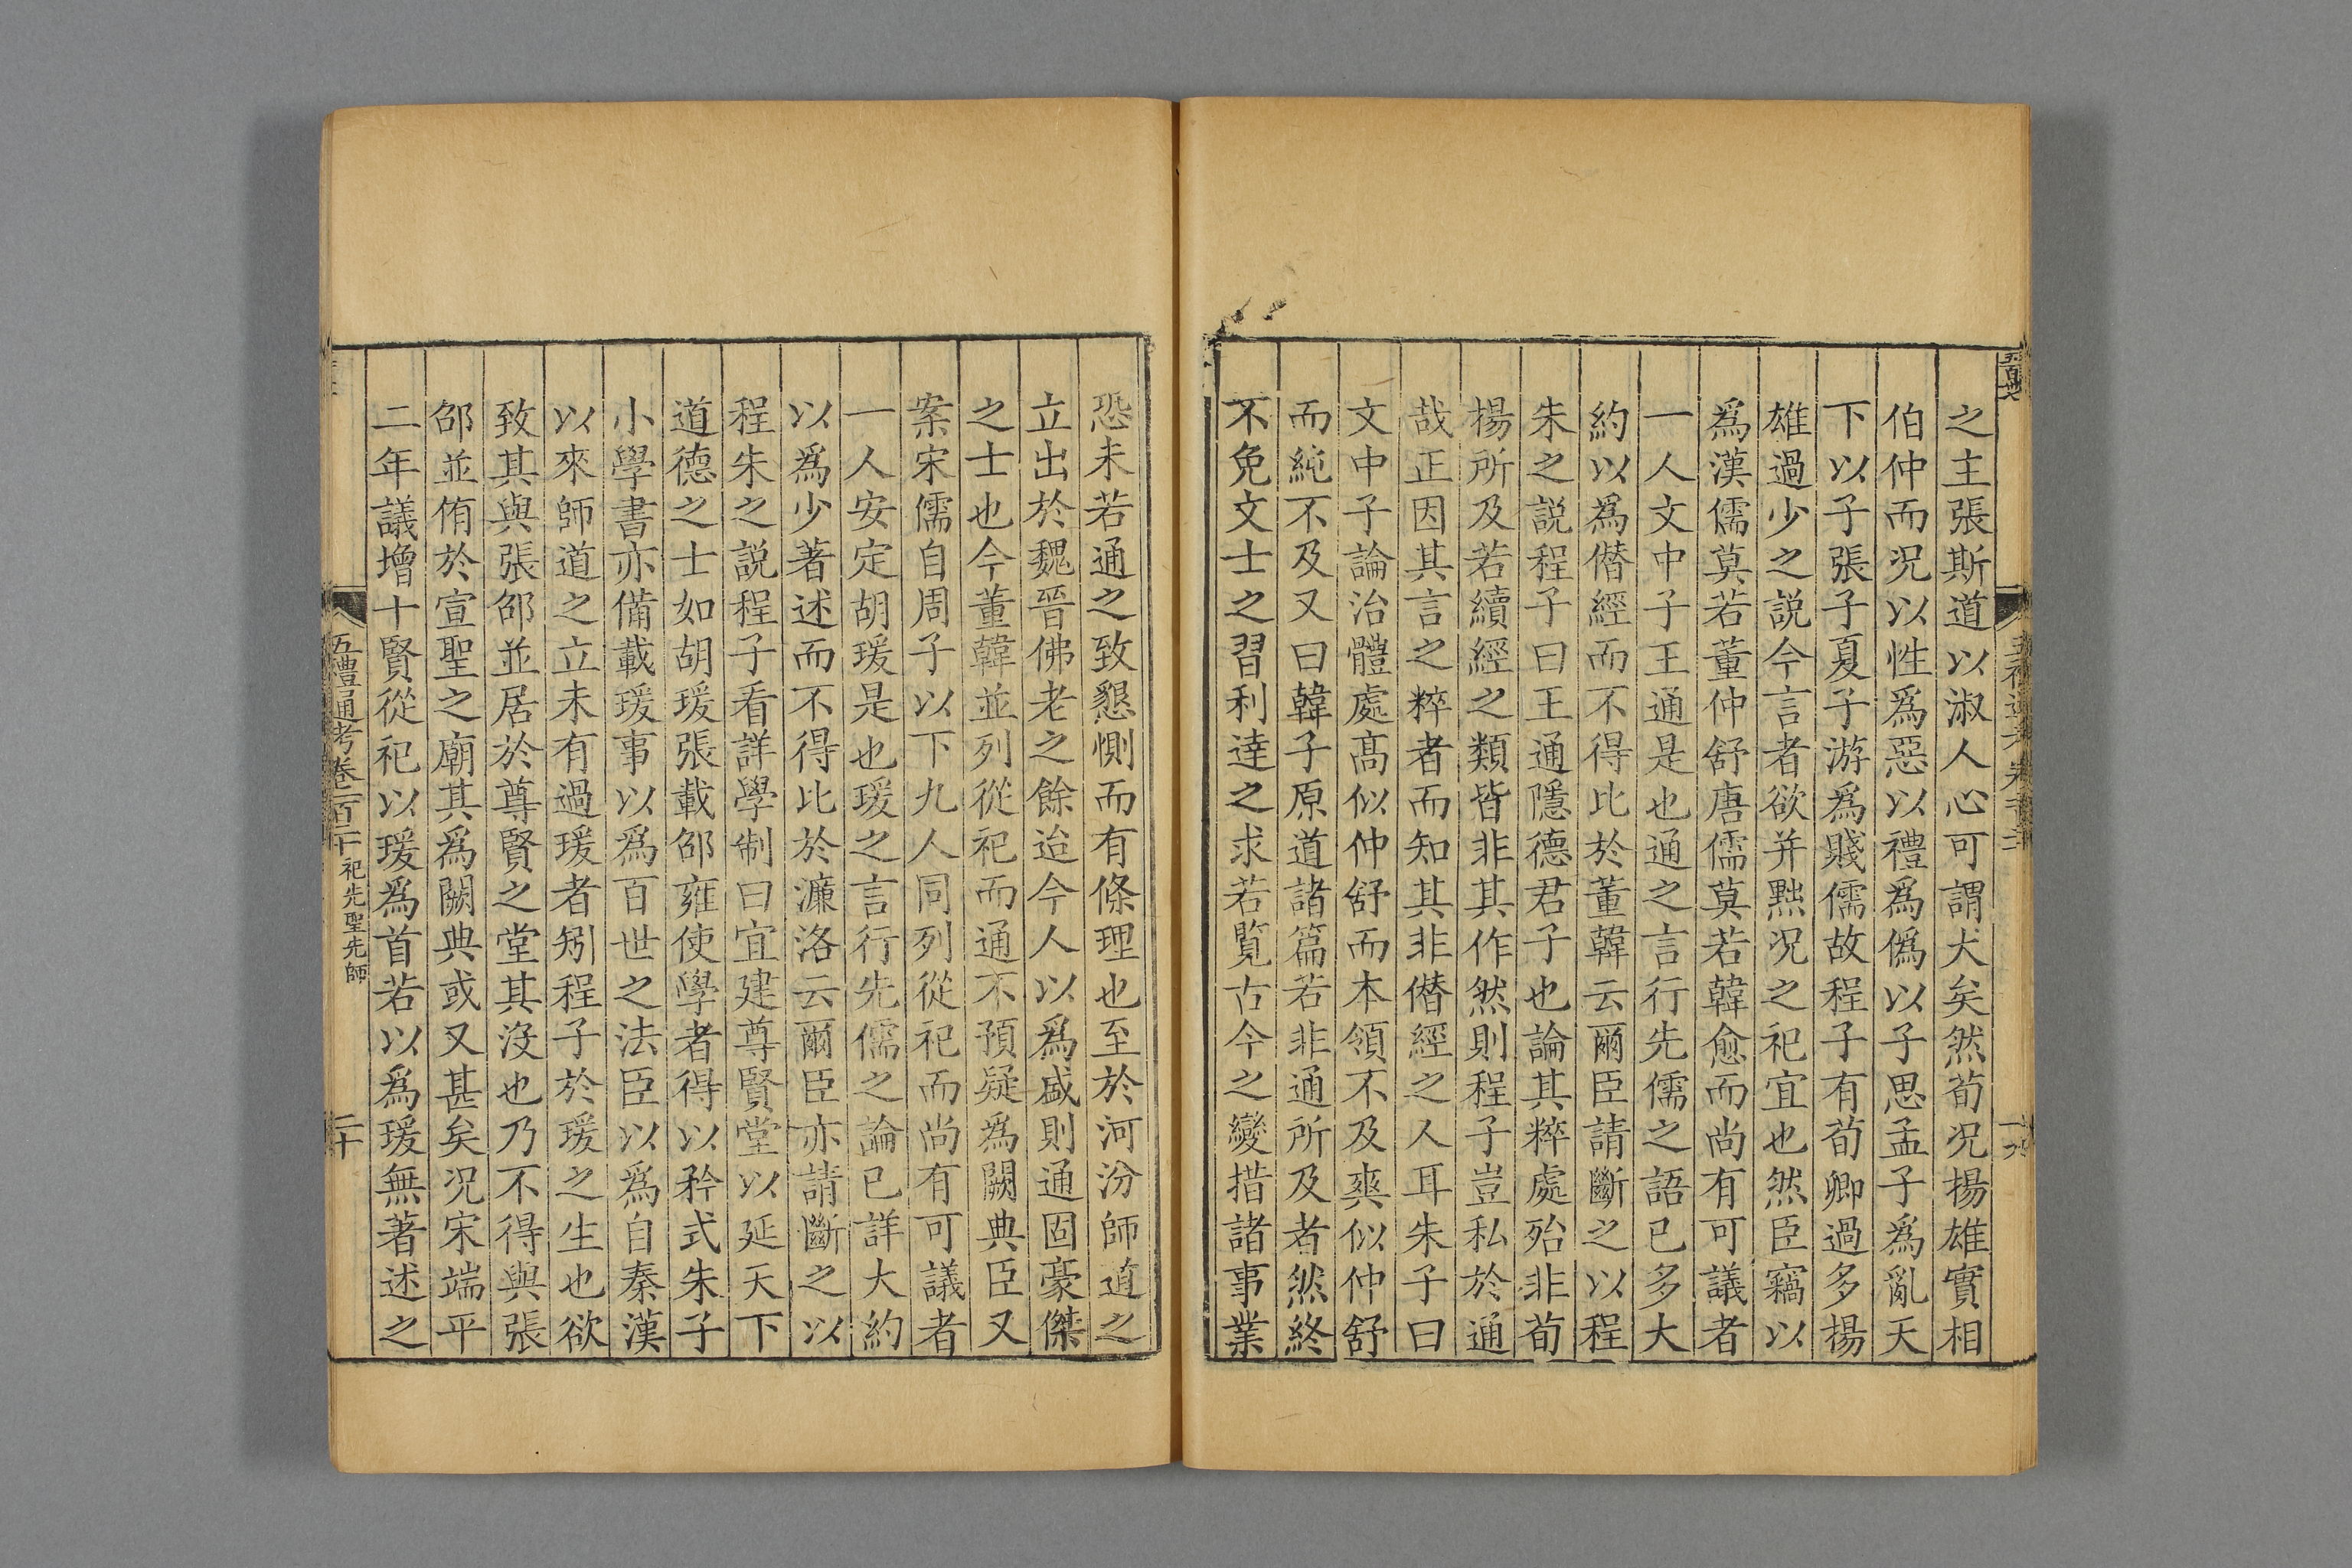 之主張斯道以淑人心可謂大矣然荀况揚雄實相
伯仲而况以性爲惡以禮爲僞以子思孟子爲亂天
下以子張子夏子游爲賤儒故程子有荀卿過多揚
雄過少之説今言者欲并黜况之祀宜也然臣竊以
爲漢儒莫若董仲舒唐儒莫若韓愈而尚有可議者
一人文中子王通是也通之言行先儒之語已多大
約以爲僭經而不得比於董韓云爾臣請斷之以程
朱之説程子曰王通隱德君子也論其粹處殆非荀
揚所及若續經之類皆非其作然則程子豈私於通
哉正因其言之粹者而知其非僭經之人耳朱子曰
文中子論治體處高似仲舒而本領不及爽似仲舒
而純不及又曰韓子原道諸篇若非通所及者然終
不免文士之習利達之求若覽古今之變措諸事業
恐未若通之致懇惻而有條理也至於河汾師道之
立出於魏晉佛老之餘迨今人以爲盛則通固豪傑
之士也今董韓並列從祀而通不預疑爲闕典臣又
案宋儒自周子以下九人同列從祀而尚有可議者
一人安定胡瑗是也瑗之言行先儒之論已詳大約
以爲少著述而不得比於濂洛云爾臣亦請斷之以
程朱之説程子看詳學制曰宜建尊賢堂以延天下
道德之士如胡瑗張載邵雍使學者得以矜式朱子
小學書亦備載瑗事以爲百世之法臣以爲自秦漢
以來師道之立未有過瑗者矧程子於瑗之生也欲
致其與張邵並居於尊賢之堂其沒也乃不得與張
邵並侑於宣聖之廟其爲闕典或又甚矣况宋端平
二年議增十賢從祀以瑗爲首若以爲瑗無著述之
五禮通考卷一百二十 祀先聖先師 二十